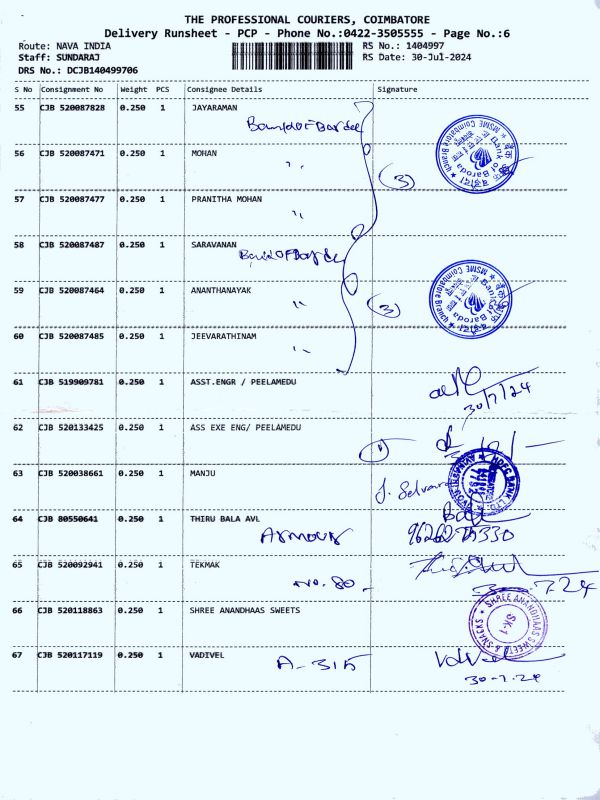 THE PROFESSIONAL COURIERS, COIMBATORE
Delivery Runsheet - PCP - Phone No.:0422-3505555 - Page No.:6
Route: NAVA INDIA
RS No.: 1404997
Staff: SUNDARAJ
RS Date: 30-Jul-2024
DRS No.: DCJB140499706
S No Consignment No Weight PCS Consignee Details Signature
55 CJB 520087828 0.250 1 JAYARAMAN
56 CJB 520087471 0.250 1 MOHAN
(3)
57 CJB 520087477 0.250 1 PRANITHA MOHAN
58 CJB 520087487 0.250 1 SARAVANAN
59 CJB 520087464 0.250 1 ANANTHANAYAK
(3)
60 CJB 520087485 0.250 1 JEEVARATHINAM
61 CJB 519909781 0.250 1 ASST.ENGR / PEELAMEDU
30/7/24
62 CJB 520133425 0.250 1 ASS EXE ENG/ PEELAMEDU
63 CJB 520038661 0.250 1 MANJU
64 CJB 80550641 0.250 1 THIRU BALA AVL
65 CJB 520092941 0.250 1 TEKMAK
No. 80
66 CJB 520118863 0.250 1 SHREE ANANDHAAS SWEETS
SHREE ANANDHAAS SWEETS & SNACKS
SK-1
67 CJB 520117119 0.250 1 VADIVEL
A-315
30-7-24